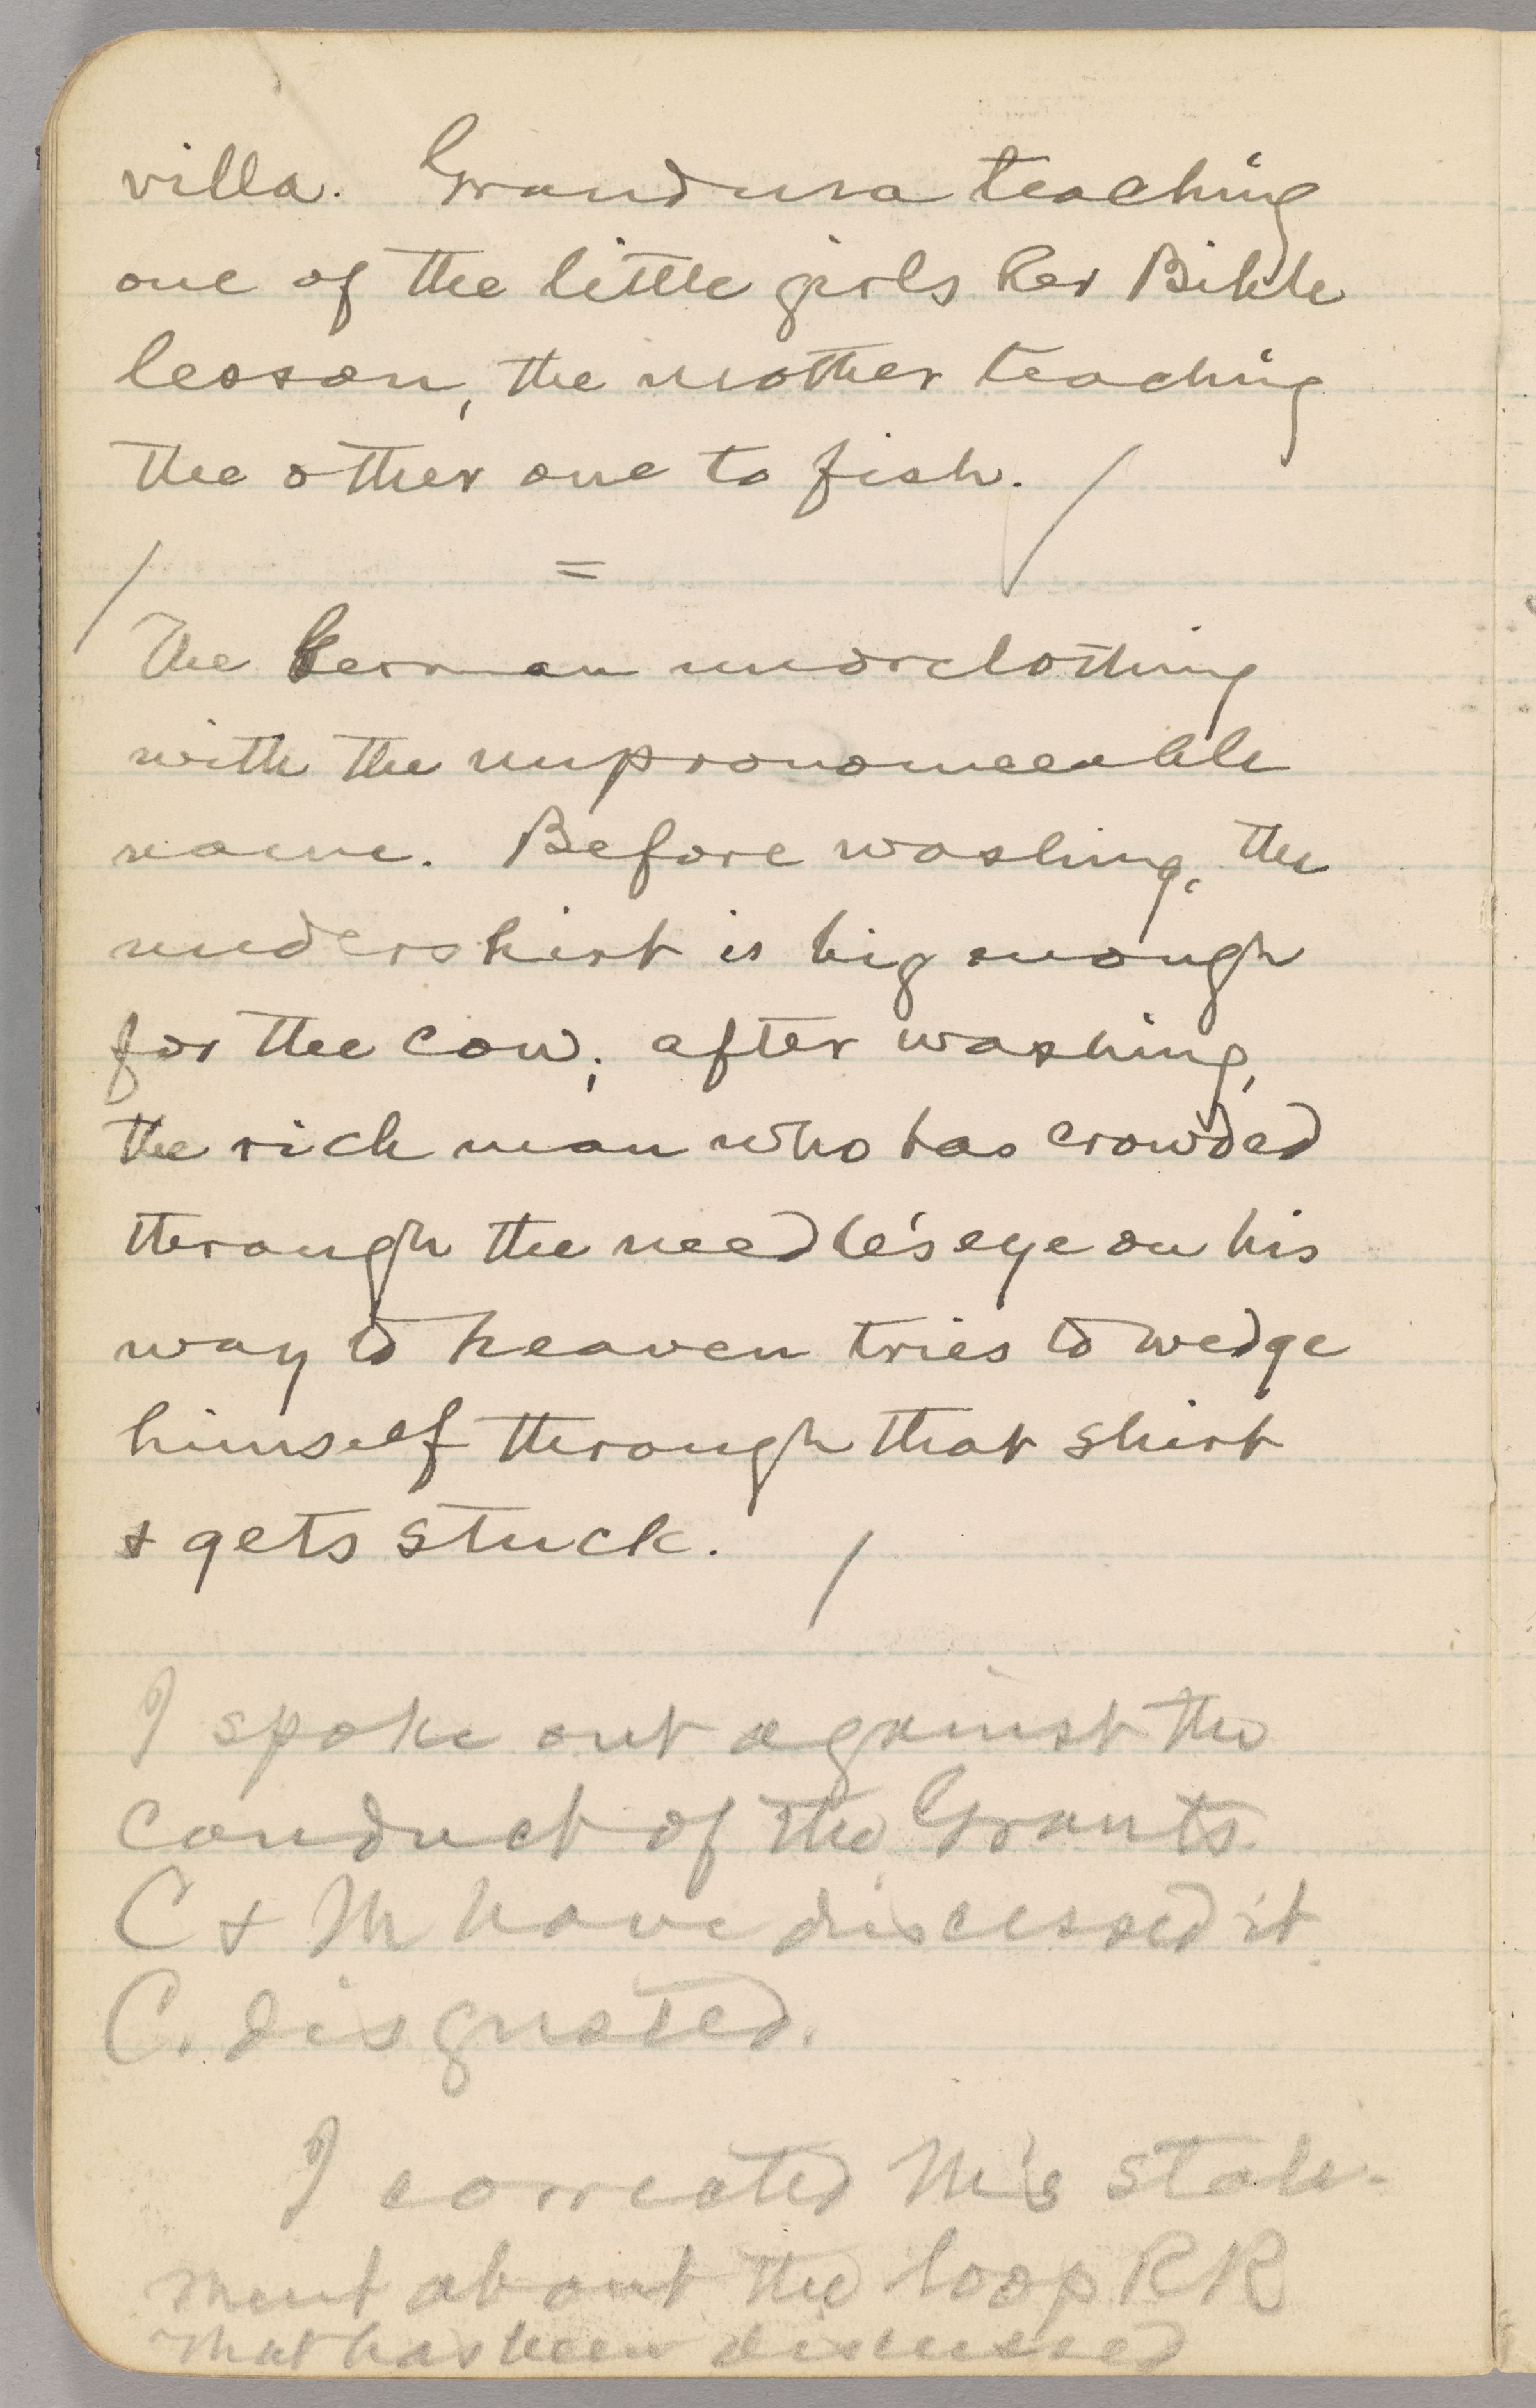 villa. Grandma teaching
one of the little girls her Bible
lesson, the mother teaching
the other one to fish. /
=
/ The German underclothing
with the unpronounceable
name. Before washing, the
undershirt is big enough
for the cow; after washing,
the rich man who has crowded
through the needle's eye on his
way to heaven tries to wedge
himself through that shirt
& gets stuck. /
I spoke out against the
conduct of the Grants
C & M have discussed it.
C. disgusted.
I corrected M's state-
ment about the loop RR
That has been discussed